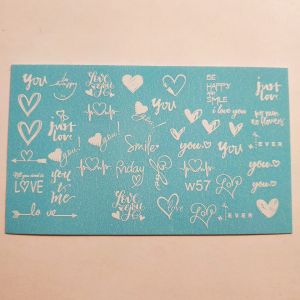 you
be
happy
Love
you
BE
HAPPY
AND
SMILE
just
love
You
i love you
just
love
you!
you!
Smile
you
you
EVER
All you need is
LOVE
you
is
me
Friday
W57
Love
love
Love
you
love
Love
EVER